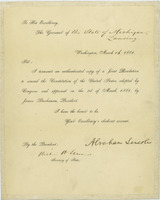 To His Excellency
The Governor of the State of Michigan
Lansing
Washington, March 16, 1861
Sir,
I transmit an authenticated copy of a Joint Resolution
to amend the Constitution of the United States, adopted by
Congress and approved on the 2d of March, 1861, by
James Buchanan, President.
I have the honor to be,
Your Excellency's obedient servant,
Abraham Lincoln
By the President
Secretary of State